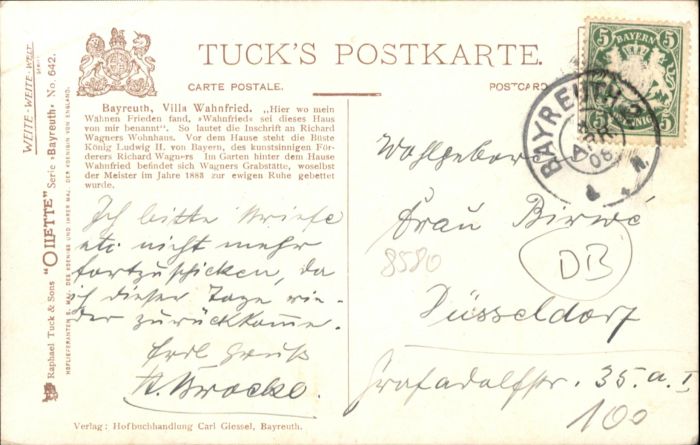 TUCK'S POSTKARTE.
CARTE POSTALE.
POSTCARD
Bayreuth, Villa Wahnfried. „Hier wo mein
Wähnen Frieden fand, »Wahnfried« sei dieses Haus
von mir benannt". So lautet die Inschrift an Richard
Wagners Wohnhaus. Vor dem Hause steht die Büste
König Ludwig II. von Bayern, des kunstsinnigen För-
derers Richard Wagners Im Garten hinter dem Hause
Wahnfried befindet sich Wagners Grabstätte, woselbst
der Meister im Jahre 1883 zur ewigen Ruhe gebettet
wurde.
Ich bitte Briefe
etc. nicht mehr
fortzuschicken, da
ich dieser Tage wie-
der zurückkomme.
Gruß
Verlag: Hofbuchhandlung Carl Giessel, Bayreuth.
WEITE-WEITE-WELT
SERIE
Raphael Tuck & Sons "OILETTE" Serie »Bayreuth« No. 642.
HOFLIEFERANTEN S. MAJ. DES KOENIGS UND IHRER MAJ. DER KOENIGIN VON ENGLAND.
5 BAYERN 5
5 PFENNIG 5
BAYREUTH 2
APR
06
Wohlgeboren
Frau Birwé
8580
DB
Düsseldorf
Grafadolfstr. 35.a.I
100